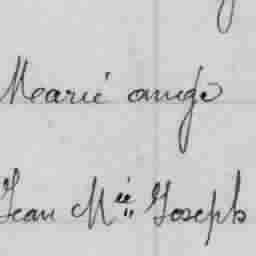 Marie ange
Jean M^ie Joseph